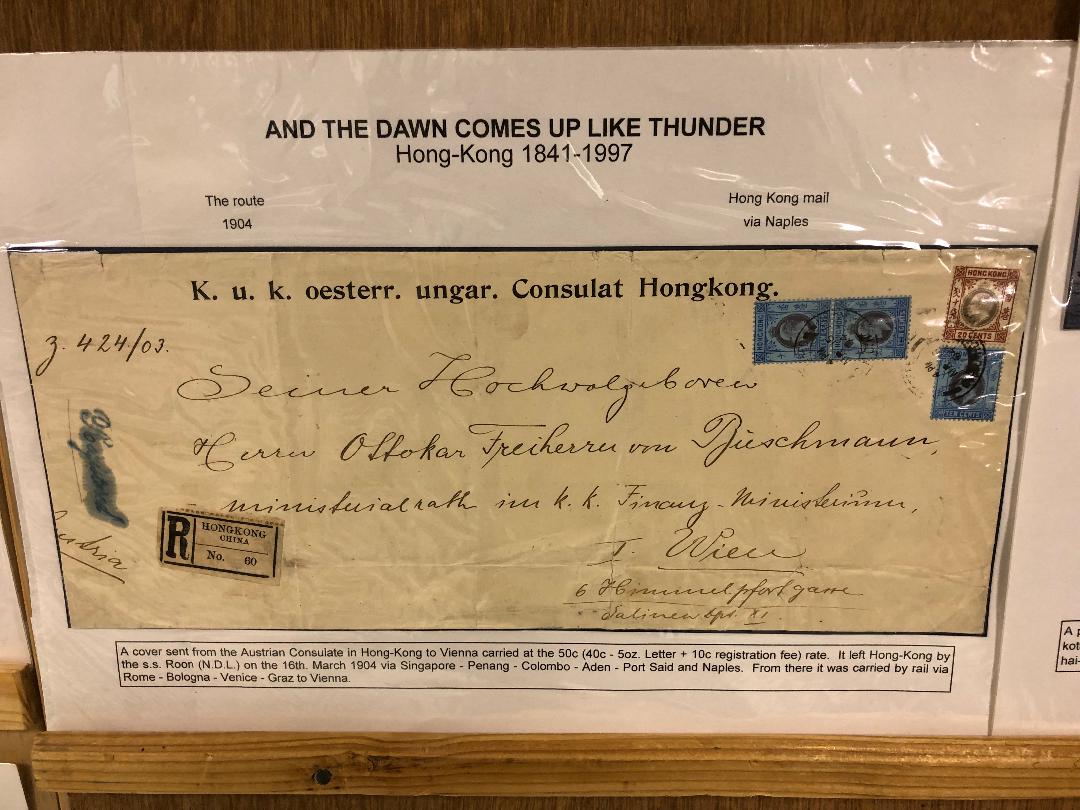 AND THE DAWN COMES UP LIKE THUNDER
Hong-Kong 1841-1997
The route
1904
Hong Kong mail
via Naples
K. u. k. oesterr. ungar. Consulat Hongkong.
HONGKONG
20 CENTS
HONGKONG
TEN CENTS
z. 424/03.
Seiner Hochwolgeboren
Herrn Ottokar Freiherrn von Büschmann,
ministerialrath im k. k. Finanz-Ministerium,
I. Wien
6 Himmelpfortgasse
Salinen Dpt. XI.
Austria
R
HONGKONG
CHINA
No. 60
A cover sent from the Austrian Consulate in Hong-Kong to Vienna carried at the 50c (40c - 5oz. Letter + 10c registration fee) rate. It left Hong-Kong by
the s.s. Roon (N.D.L.) on the 16th. March 1904 via Singapore - Penang - Colombo - Aden - Port Said and Naples. From there it was carried by rail via
Rome - Bologna - Venice - Graz to Vienna.
A p
kot
hai-